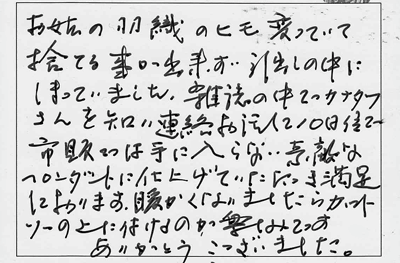 お姑の羽織のヒモ変っていて
捨てる事が出来ず引出しの中に
しまっていました。雑誌の中でカナタ
さんを知い連絡お
10日
市販では手に入らない素敵な
ペンダントに仕上げていただき満足
しております。暖かくなりましたらカット
ソーの上に付けるのが楽しみです
ありがとうございました。